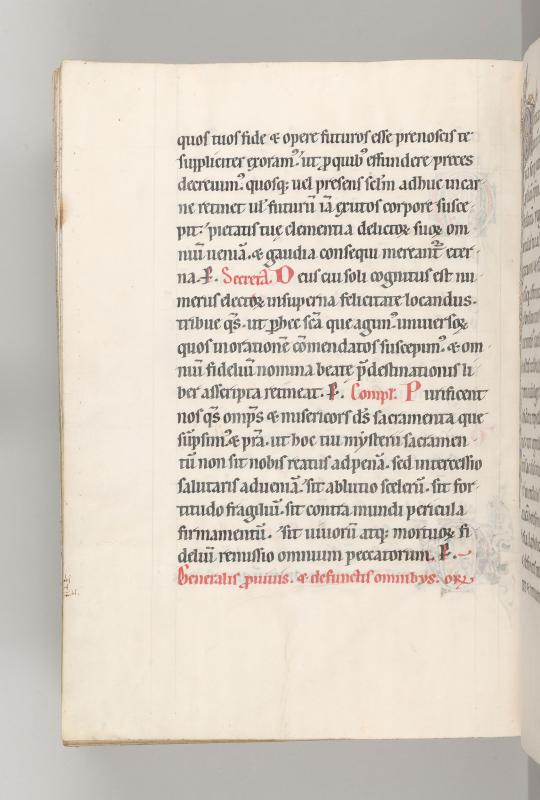 quos tuos fide ⁊ opere futuros esse prenoscis te
suppliciter exoramꝰ. ut ꝓ quibꝰ effundere preces
decreuimꝰ. quosq; uel presens sclm̄ adhuc in car-
ne retinet ul' futurū iā exutos corpore susce-
pit. pietatis tue clementia delictoꝝ suoꝝ om
niū ueniā. ⁊ gaudia consequi mereant᷑ eter
na. P. Secreta. Deus cui soli cognitus est nu-
merus electoꝝ in superna felicitate locandus.
tribue q̄s. ut ꝑ hec sc̄a que agimꝰ. uniuersoꝝ
quos in oratione cōmendatos suscepimꝰ. ⁊ om
niū fideliū nomina beate p̄destinationis li
ber asscripta retineat. P. Compl'. Purificent
nos q̄s omp̄s ⁊ misericors ds̄ sacramenta que
sūpsimꝰ. ⁊ p̄ta. ut hoc tuū mysterii sacramen
tū non sit nobis reatus ad penā. sed intercessio
salutaris ad ueniā. sit ablutio scelerū. sit for-
titudo fragiliū. sit contra mundi pericula
firmamentū. sit uiuorū atq; mortuoꝝ fi
deliū remissio omnium peccatorum. P.
Generalis ꝓ uiuis. ⁊ defunctis omnibus. or̄